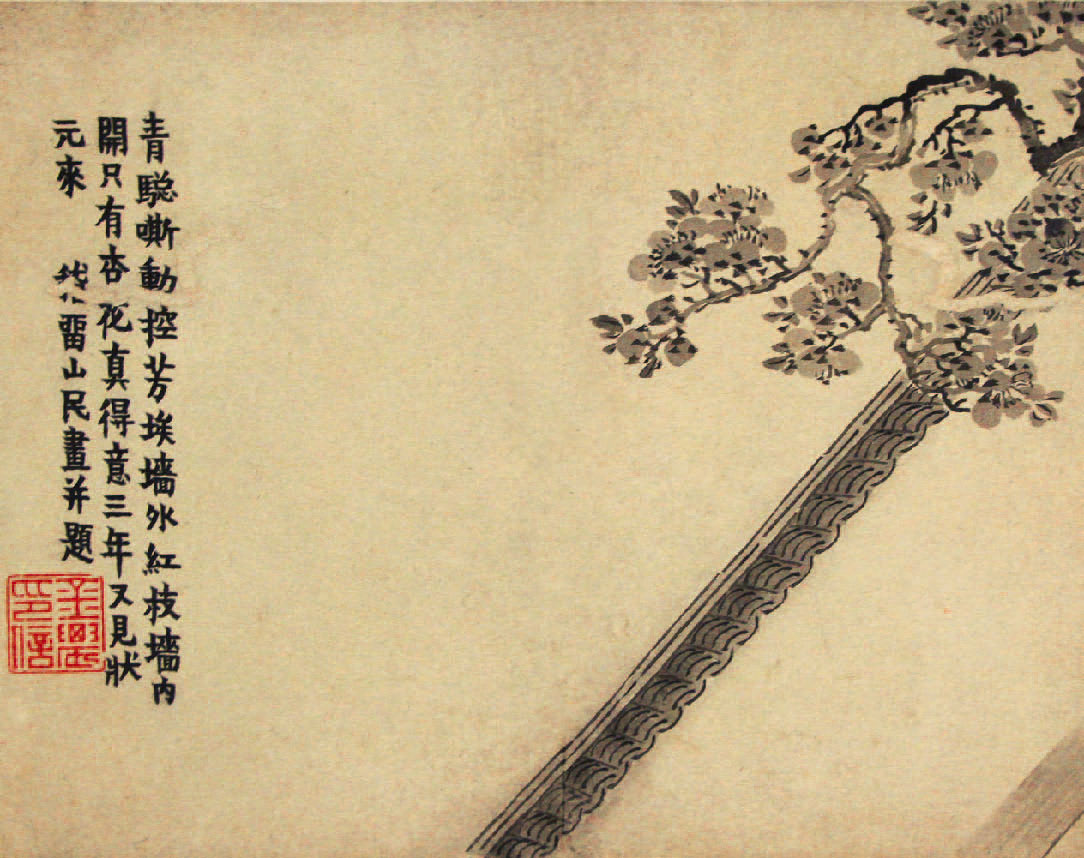 青騘嘶動控芳埃墻外紅枝墻内
開只有杏花真得意三年又見狀
元來 留山民畫并題
金農印信